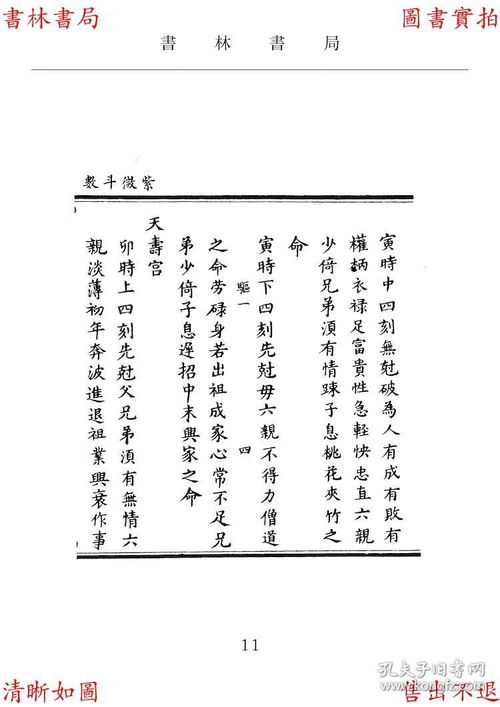 書林書局
圖書實拍
書林書局
紫微斗數
寅時中四刻無尅破為人有成有敗有
權柄衣禄足富貴性急輕快忠直六親
少倚兄弟須有情踈子息桃花夾竹之
命
寅時下四刻先尅毋六親不得力僧道
驅一 四
之命劳碌身若出祖成家心常不足兄
弟少倚子息遲招中末興家之命
天壽宫
卯時上四刻先尅父兄弟須有無情六
親淡薄初年奔波進退祖業興衰作事
11
孔夫子旧书网
清晰如圖
售出不退